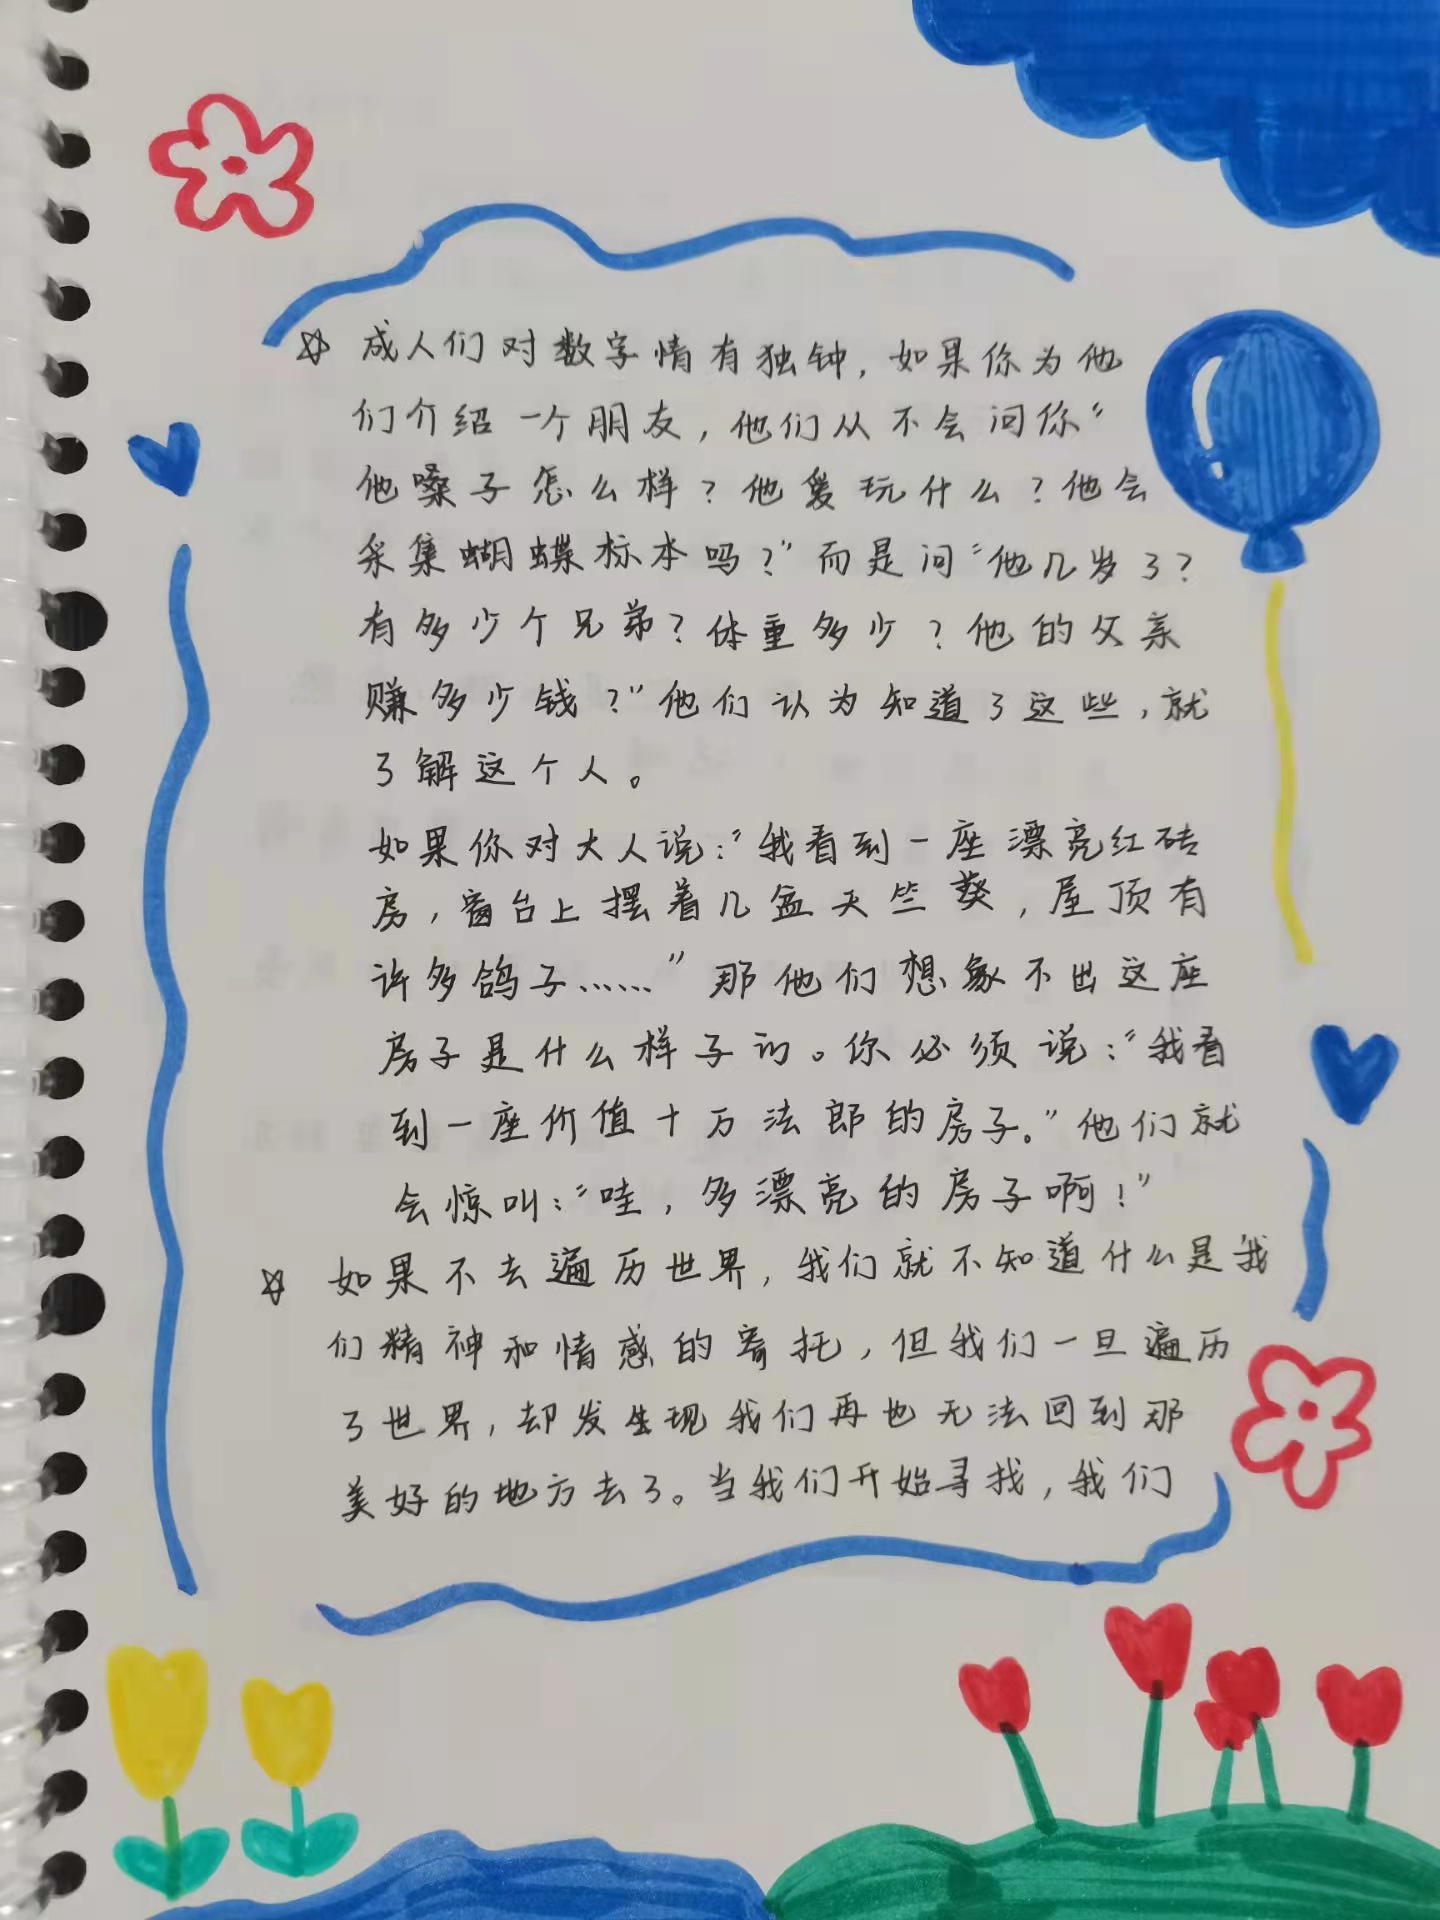 ☆ 成人们对数字情有独钟，如果你为他
们介绍一个朋友，他们从不会问你“
他嗓子怎么样？他爱玩什么？他会
采集蝴蝶标本吗？”而是问“他几岁了？
有多少个兄弟？体重多少？他的父亲
赚多少钱？”他们认为知道了这些，就
了解这个人。
如果你对大人说：“我看到一座漂亮红砖
房，窗台上摆着几盆天竺葵，屋顶有
许多鸽子……”那他们想象不出这座
房子是什么样子的。你必须说：“我看
到一座价值十万法郎的房子。”他们就
会惊叫：“哇，多漂亮的房子啊！”
☆ 如果不去遍历世界，我们就不知道什么是我
们精神和情感的寄托，但我们一旦遍历
了世界，却发生现我们再也无法回到那
美好的地方去了。当我们开始寻找，我们